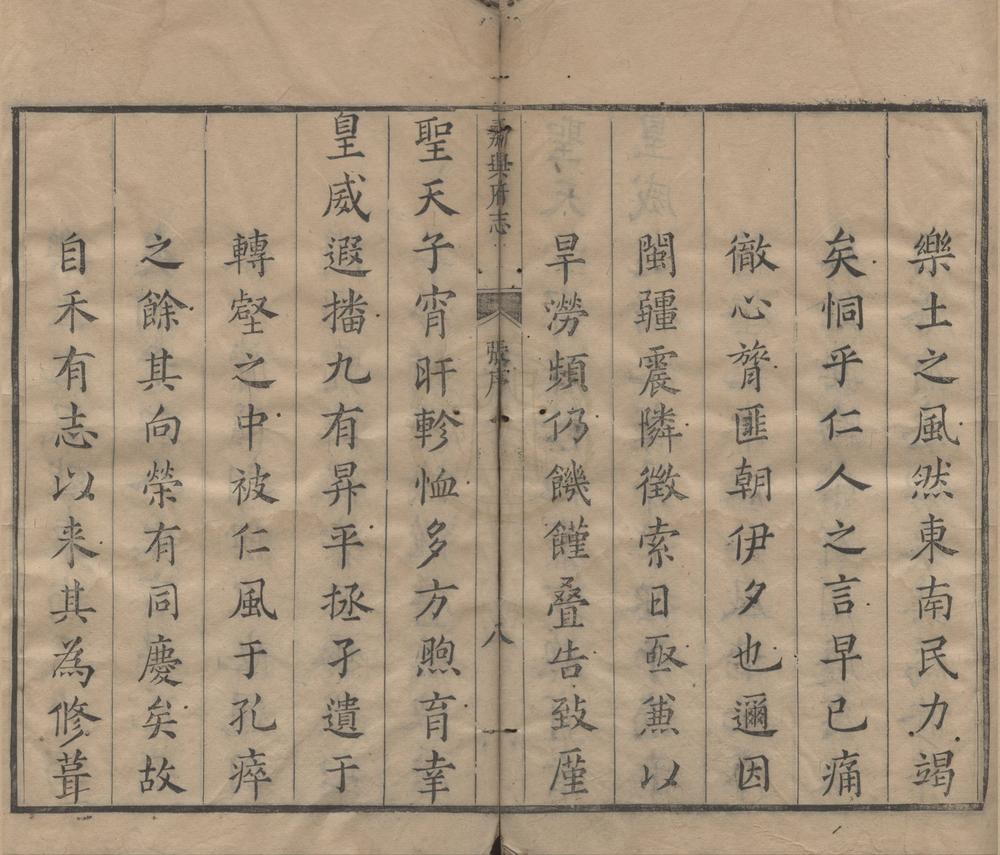 樂土之風然東南民力竭
矣恫乎仁人之言早已痛
徹心膂匪朝伊夕也邇因
閩疆震隣徴索日亟兼以
旱澇頻仍饑饉叠告致厪
嘉興府志
張序
八
聖天子宵旰軫恤多方煦育幸
皇威遐播九有昇平拯孑遺于
轉壑之中被仁風于孔瘁
之餘其向榮有同慶矣故
自禾有志以来其為修葺